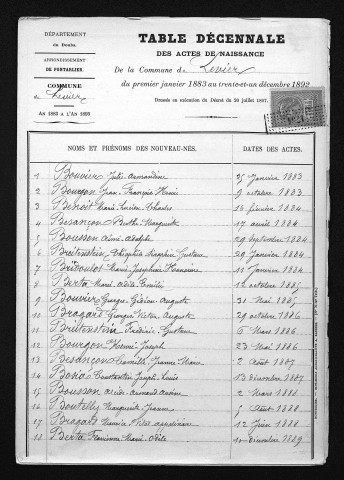 DÉPARTEMENT
du Doubs.
ARRONDISSEMENT
DE PONTARLIER.
COMMUNE
de Levier
AN 1883 A L'AN 1892
TABLE DÉCENNALE
DES ACTES DE NAISSANCE
De la Commune de Levier
du premier janvier 1883 au trente-et-un décembre 1892
Dressée en exécution du Décret du 20 juillet 1807.
NOMS ET PRÉNOMS DES NOUVEAU-NÉS. DATES DES ACTES.
1 Bouvier Jules Armandine 25 Janvier 1883
2 Bourgon Jean François Henri 9 octobre 1883
3 Benoit Marie Lucien Charles 14 février 1884
4 Besançon Berthe Marguerite 17 avril 1884
5 Bousson Aimé Adolphe 29 Septembre 1884
6 Buitenstein Gustave 29 Janvier 1884
7 Marie Joséphine 11 Janvier 1884
8 Berta Marie Adèle Emilie 12 octobre 1885
9 Bouvier Georges Gédéon Auguste 31 Mai 1885
10 Bragard Georges Victor Auguste 29 octobre 1886
11 Buitenstein Frédéric Gustave 6 Mars 1886
12 Bourgon Joseph 23 Mai 1886
13 Besançon Camille Jeanne Marie 2 Août 1887
14 Constantin Joseph Louis 13 Décembre 1887
15 Bousson Armand 2 Mars 1888
16 Marguerite Jeanne Août 1888
17 Bragard Maurice 12 Juin 1888
18 Berta Marie Adèle 10 Décembre 1889